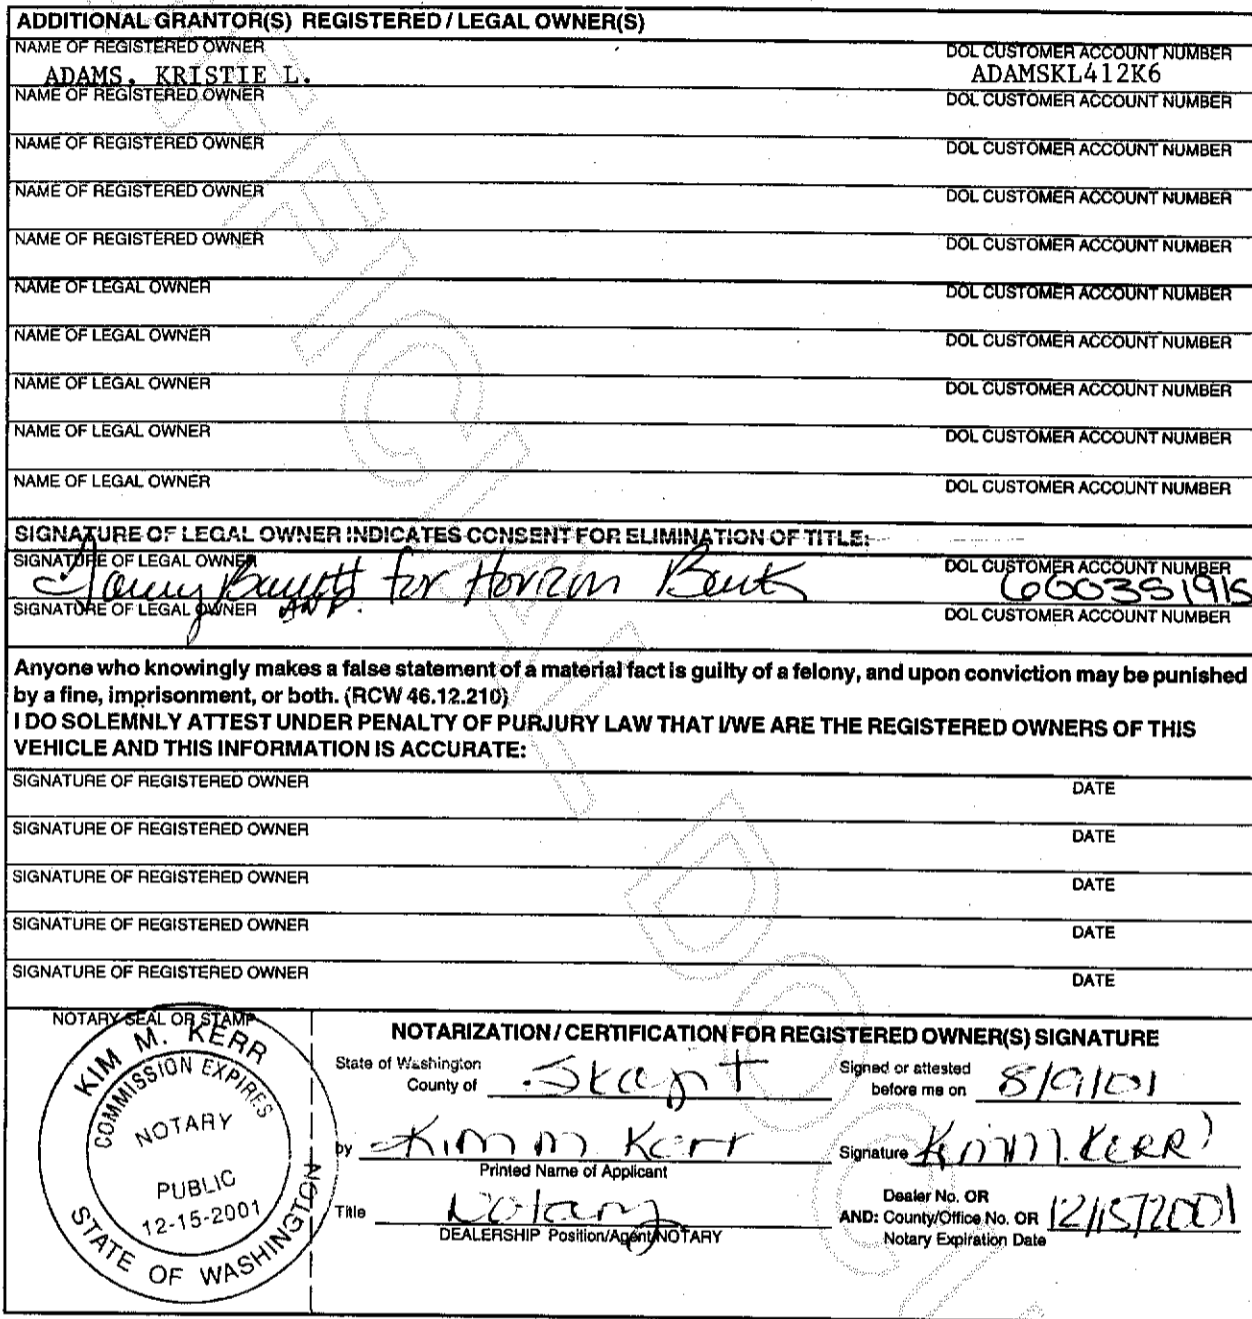 ADDITIONAL GRANTOR(S) REGISTERED / LEGAL OWNER(S)
NAME OF REGISTERED OWNER DOL CUSTOMER ACCOUNT NUMBER
ADAMS, KRISTIE L. ADAMSKL412K6
NAME OF REGISTERED OWNER DOL CUSTOMER ACCOUNT NUMBER
NAME OF REGISTERED OWNER DOL CUSTOMER ACCOUNT NUMBER
NAME OF REGISTERED OWNER DOL CUSTOMER ACCOUNT NUMBER
NAME OF REGISTERED OWNER DOL CUSTOMER ACCOUNT NUMBER
NAME OF LEGAL OWNER DOL CUSTOMER ACCOUNT NUMBER
NAME OF LEGAL OWNER DOL CUSTOMER ACCOUNT NUMBER
NAME OF LEGAL OWNER DOL CUSTOMER ACCOUNT NUMBER
NAME OF LEGAL OWNER DOL CUSTOMER ACCOUNT NUMBER
NAME OF LEGAL OWNER DOL CUSTOMER ACCOUNT NUMBER
SIGNATURE OF LEGAL OWNER INDICATES CONSENT FOR ELIMINATION OF TITLE:
SIGNATURE OF LEGAL OWNER DOL CUSTOMER ACCOUNT NUMBER
for Horizon Bank 600351915
SIGNATURE OF LEGAL OWNER DOL CUSTOMER ACCOUNT NUMBER
Anyone who knowingly makes a false statement of a material fact is guilty of a felony, and upon conviction may be punished
by a fine, imprisonment, or both. (RCW 46.12.210)
I DO SOLEMNLY ATTEST UNDER PENALTY OF PURJURY LAW THAT I/WE ARE THE REGISTERED OWNERS OF THIS
VEHICLE AND THIS INFORMATION IS ACCURATE:
SIGNATURE OF REGISTERED OWNER DATE
SIGNATURE OF REGISTERED OWNER DATE
SIGNATURE OF REGISTERED OWNER DATE
SIGNATURE OF REGISTERED OWNER DATE
SIGNATURE OF REGISTERED OWNER DATE
NOTARY SEAL OR STAMP
KIM M. KERR
COMMISSION EXPIRES
NOTARY
PUBLIC
12-15-2001
STATE OF WASHINGTON
NOTARIZATION / CERTIFICATION FOR REGISTERED OWNER(S) SIGNATURE
State of Washington Signed or attested
County of Skagit before me on 8/9/01
by Kim M Kerr Signature Kim M. KERR
Printed Name of Applicant
Title Notary Dealer No. OR
AND: County/Office No. OR 12/15/2001
DEALERSHIP Position/Agent/NOTARY Notary Expiration Date